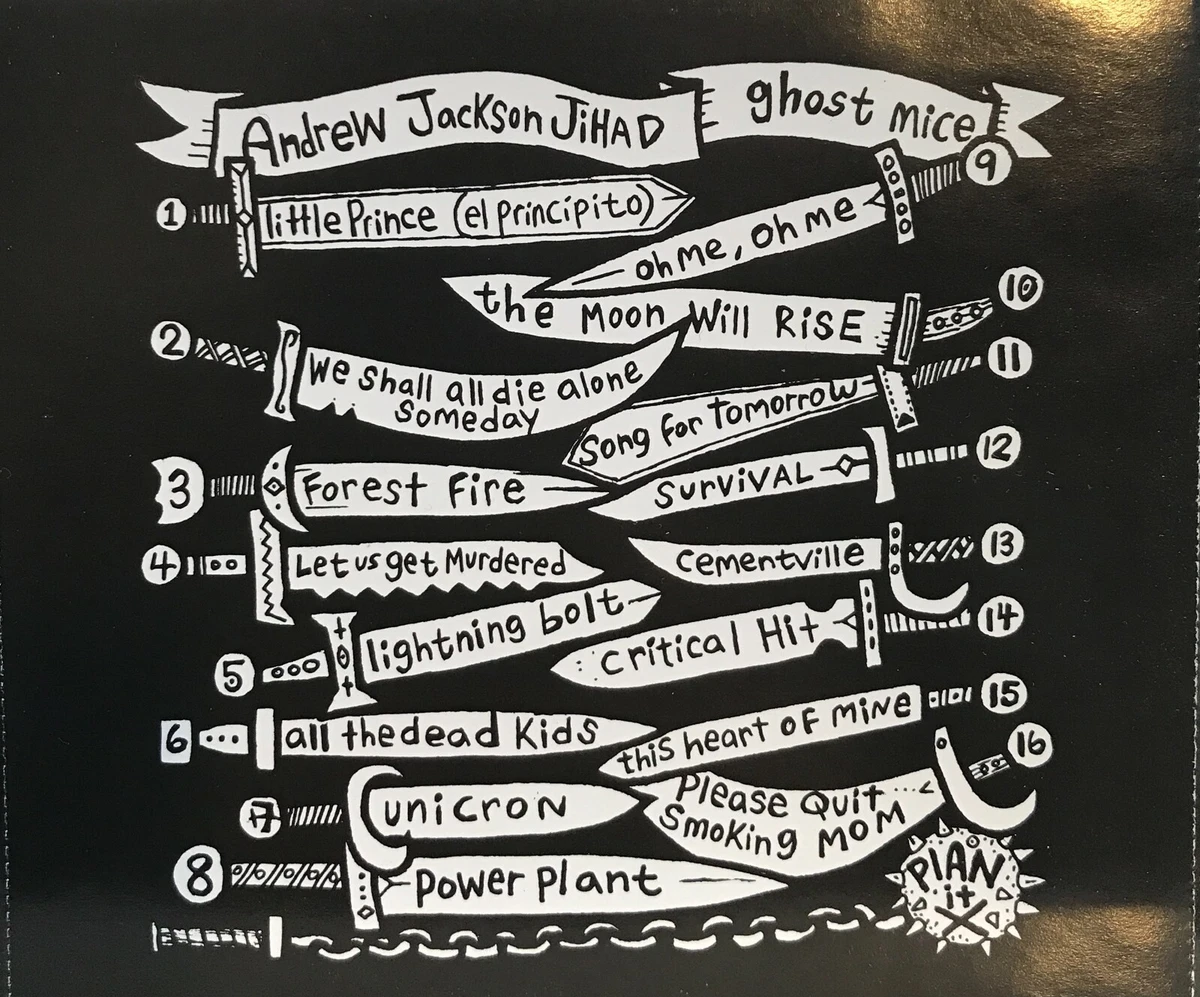 Andrew Jackson JiHAD
ghost mice
1 little Prince (el principito)
2 We shall all die alone
someday
3 Forest Fire
4 Let us get Murdered
5 lightning bolt
6 all the dead Kids
7 unicron
8 power plant
9 oh me, oh me
10 the Moon Will RiSE
11 Song for tomorrow
12 SurviVAL
13 cementville
14 critical Hit
15 this heart of MiNE
16 Please Quit
Smoking MOM
PlAN
it
X